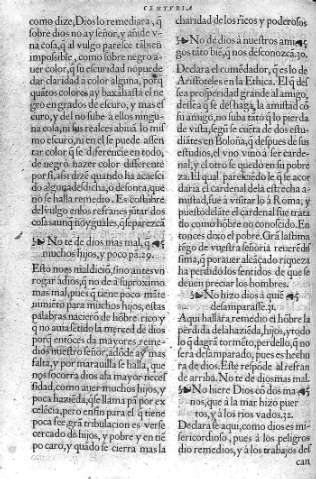 CENTVRIA
como dize, Dios lo remediara, q̃
sobre dios no ay señor, y añide v-
na cosa, q̃ al vulgo parece tãbien
impossible, como sobre negro a-
uer color, q̃ su escuridad no puede
dar claridad a color alguna, porq̃
quãtos colores ay baxã hasta el ne
gro en grados de escuro, y mas es
curo, y del no sube a ellos ningu-
na cosa, ni sus realces
escuro, ni en el se puede assen
tar color q̃ se diferencie en todo,
de negro hazer color diferente
por si, assi dizẽ quando ha acaesci
do alguna desdicha, o desonra, que
no se halla remedio. Es costũbre
del vulgo en los refranes jũtar dos
cosas aunq̃ no yguales, q̃ se parezcã
No te de dios mas mal, q̃
muchos hijos, y poco pã. 29.
Esto no es maldiciõ, sino antes vn
rogar a dios, q̃ no de a su proximo
mas mal, pues q̃ tiene poco mãte
nimiẽto para muchos hijos, estas
palabras naciero de hõbre rico y
q̃ no auia sẽtido la merced de dios
porq̃ entõces da mayores reme-
dios nuestro señor, adõde ay mas
falta, y por marauilla se halla, que
nos socorra dios a la mayor neces
sidad, como auer muchos hijos, y
poca haziẽda, q̃ se llama pã por ex
celẽcia, pero en fin para el q̃ tiene
poca fee, grã tribulacion es verse
cercado de hijos, y pobre y en tiẽ
po caro, y quãdo se cierra mas la
charidad de los ricos y poderosos
No de dios à nuestros ami-
gos tãto biẽ, q̃ nos desconozcã. 30.
Declara el comẽdador, q̃ es lo de
Aristoteles en la Ethica. El q̃ des
sea prosperidad grande al amigo,
dessea q̃ se deshaga, la amistad cõ
su amigo, no suba tãto q̃ lo pierda
de vista, segũ se cuẽta de dos estu-
diãtes en Boloña, q̃ despues de sus
estudios, el vno vino à ser carde-
nal, y el otro se quedo en su pobre
za. El qual pareciẽdole q̃ se acor
daria el cardenal dela estrecha a-
mistad, fue a visitar lo à Roma, y
puesto delãte el cardenal fue trata
do como hõbre no conoscido. En
tonces dixo el pobre. Grã lastima
tẽgo de vuestra señoria
sima, q̃ por auer alcãçado riqueza
ha perdido los sentidos de que se
deuen preciar los hombres.
No hizo dios à quiẽ
desamparasse. 31.
Aqui hallara remedio el hõbre la
pẽrdida dela haziẽda, hijos, y todo
lo q̃ dagrã tormẽto, perdello, q̃ no
sera desamparado, pues es hechu
ra de dios. Este respõde al refran
de arriba. No te de dios mas mal.
No hiere Dios cõ dos ma
nos, que à la mar hizo puer
tos, y à los rios vados. 32.
Declara se aqui, como dios es mi-
sericordioso, pues à los peligros
dio remedios, y à los trabajos des
can